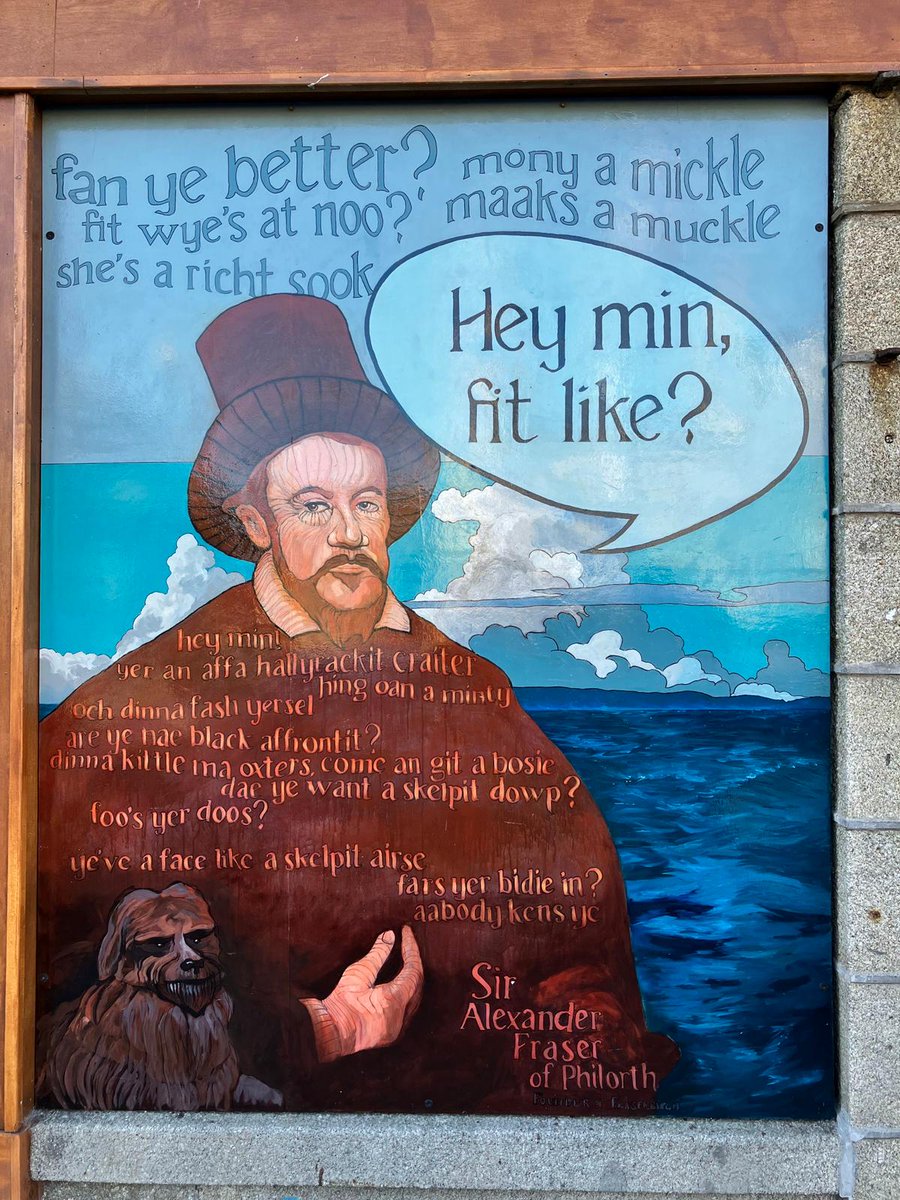 fan ye better?
fit wye's at noo?
she's a richt sook
mony a mickle
maaks a muckle
Hey min,
fit like?
hey min!
yer an affa hallyrackit craiter
hing oan a minty
och dinna fash yersel
are ye nae black affrontit?
dinna kittle ma oxters, come an git a bosie
dae ye want a skelpit dowp?
foo's yer doos?
ye've a face like a skelpit airse
far's yer bidie in?
aabody kens ye
Sir
Alexander
Fraser
of Philorth
Founder of Fraserburgh